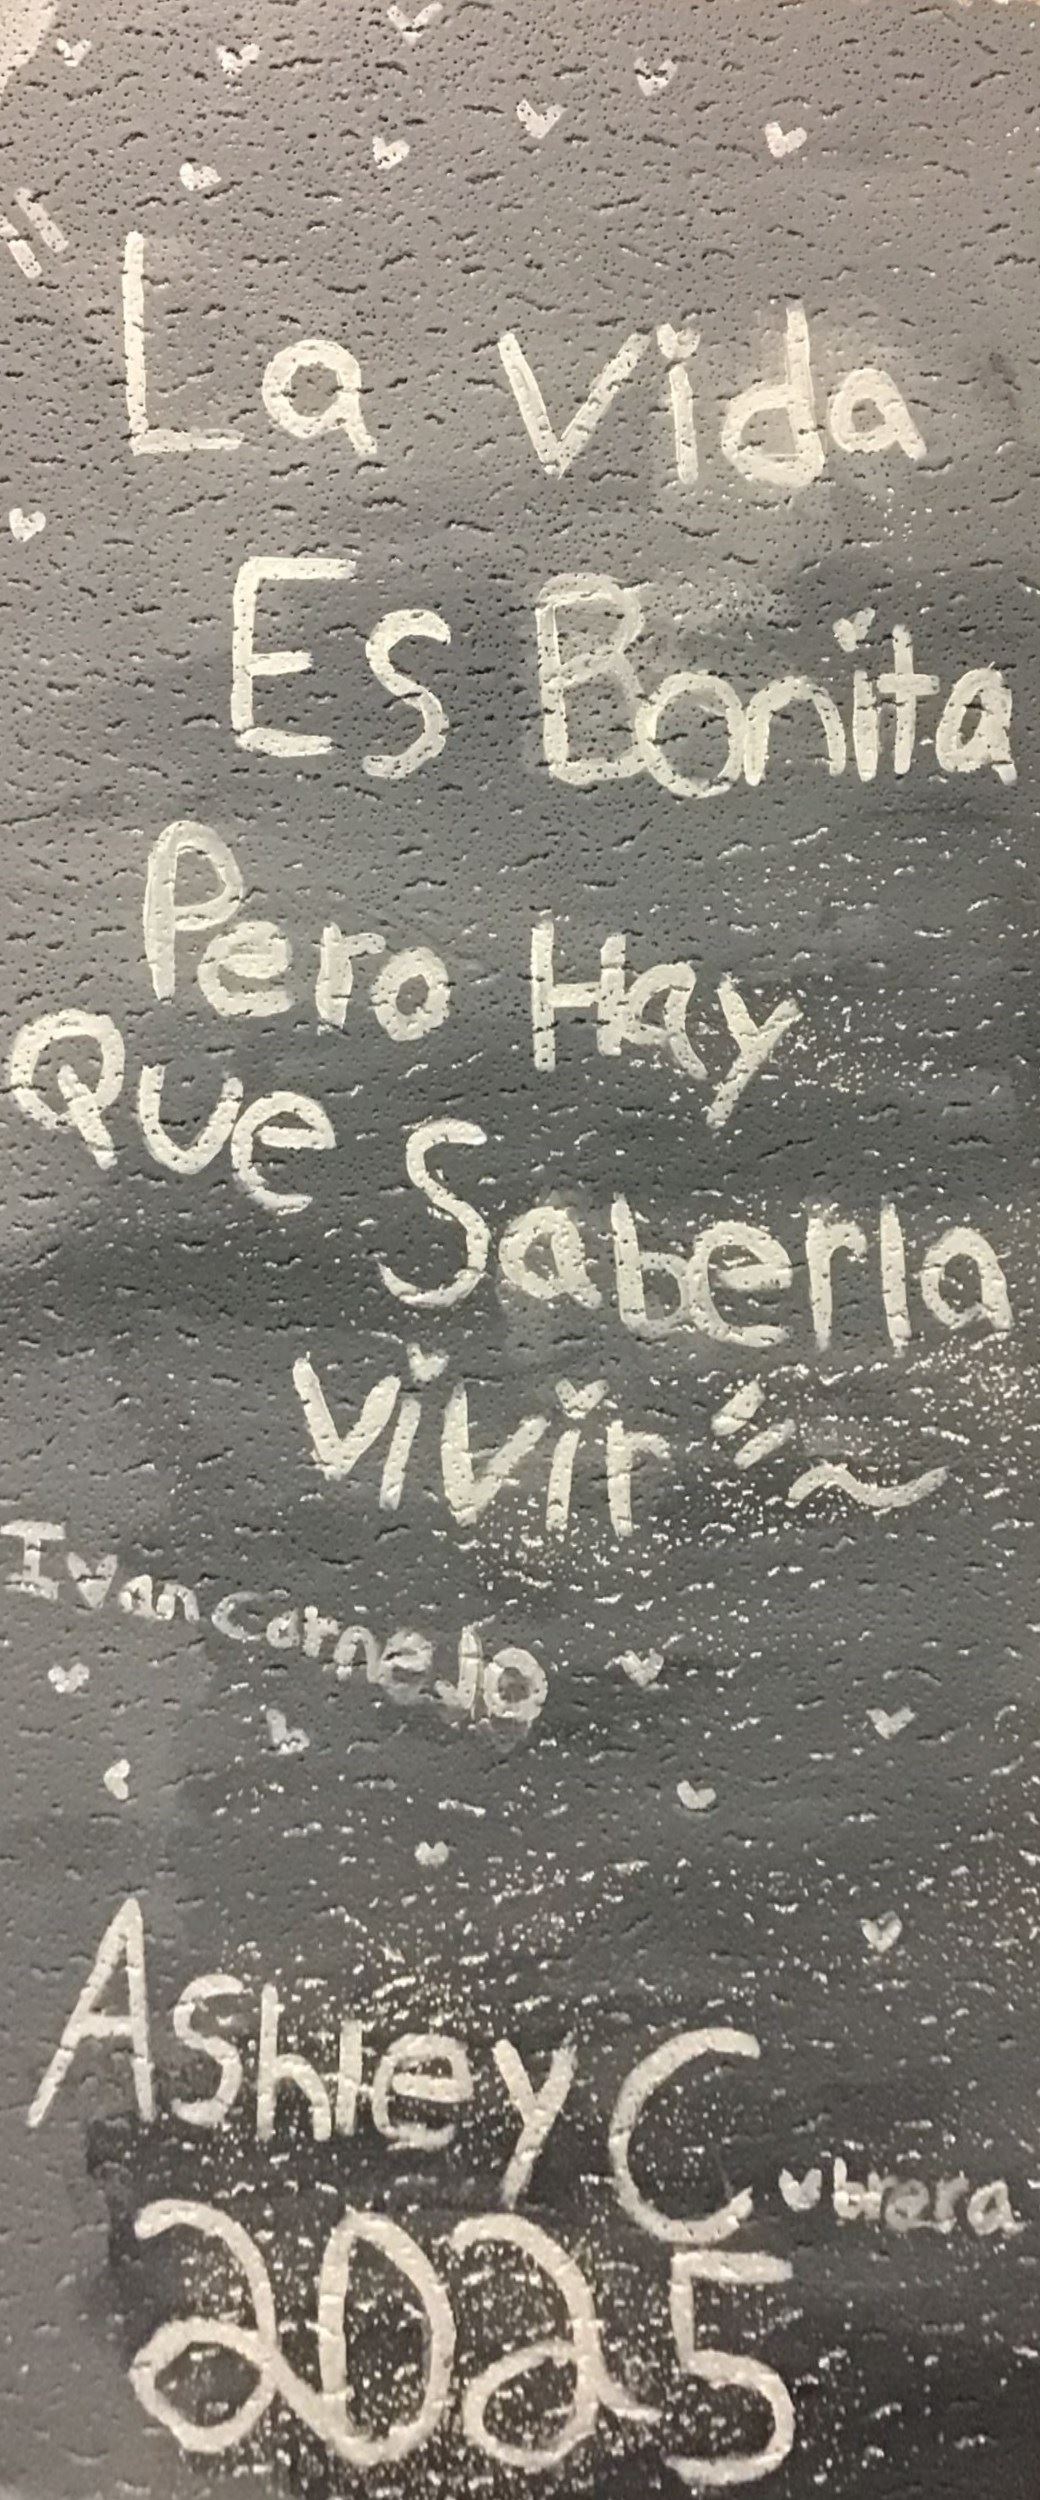 La Vida
Es Bonita
Pero Hay
Que Saberla
Vivir"~
Ivan cornejo
Ashley C
2025